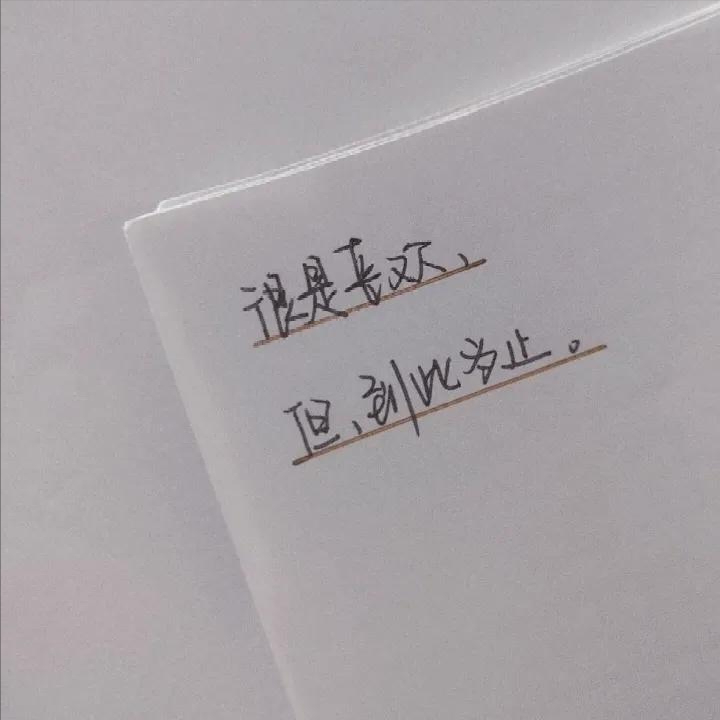 很是喜欢、
但、到此为止。